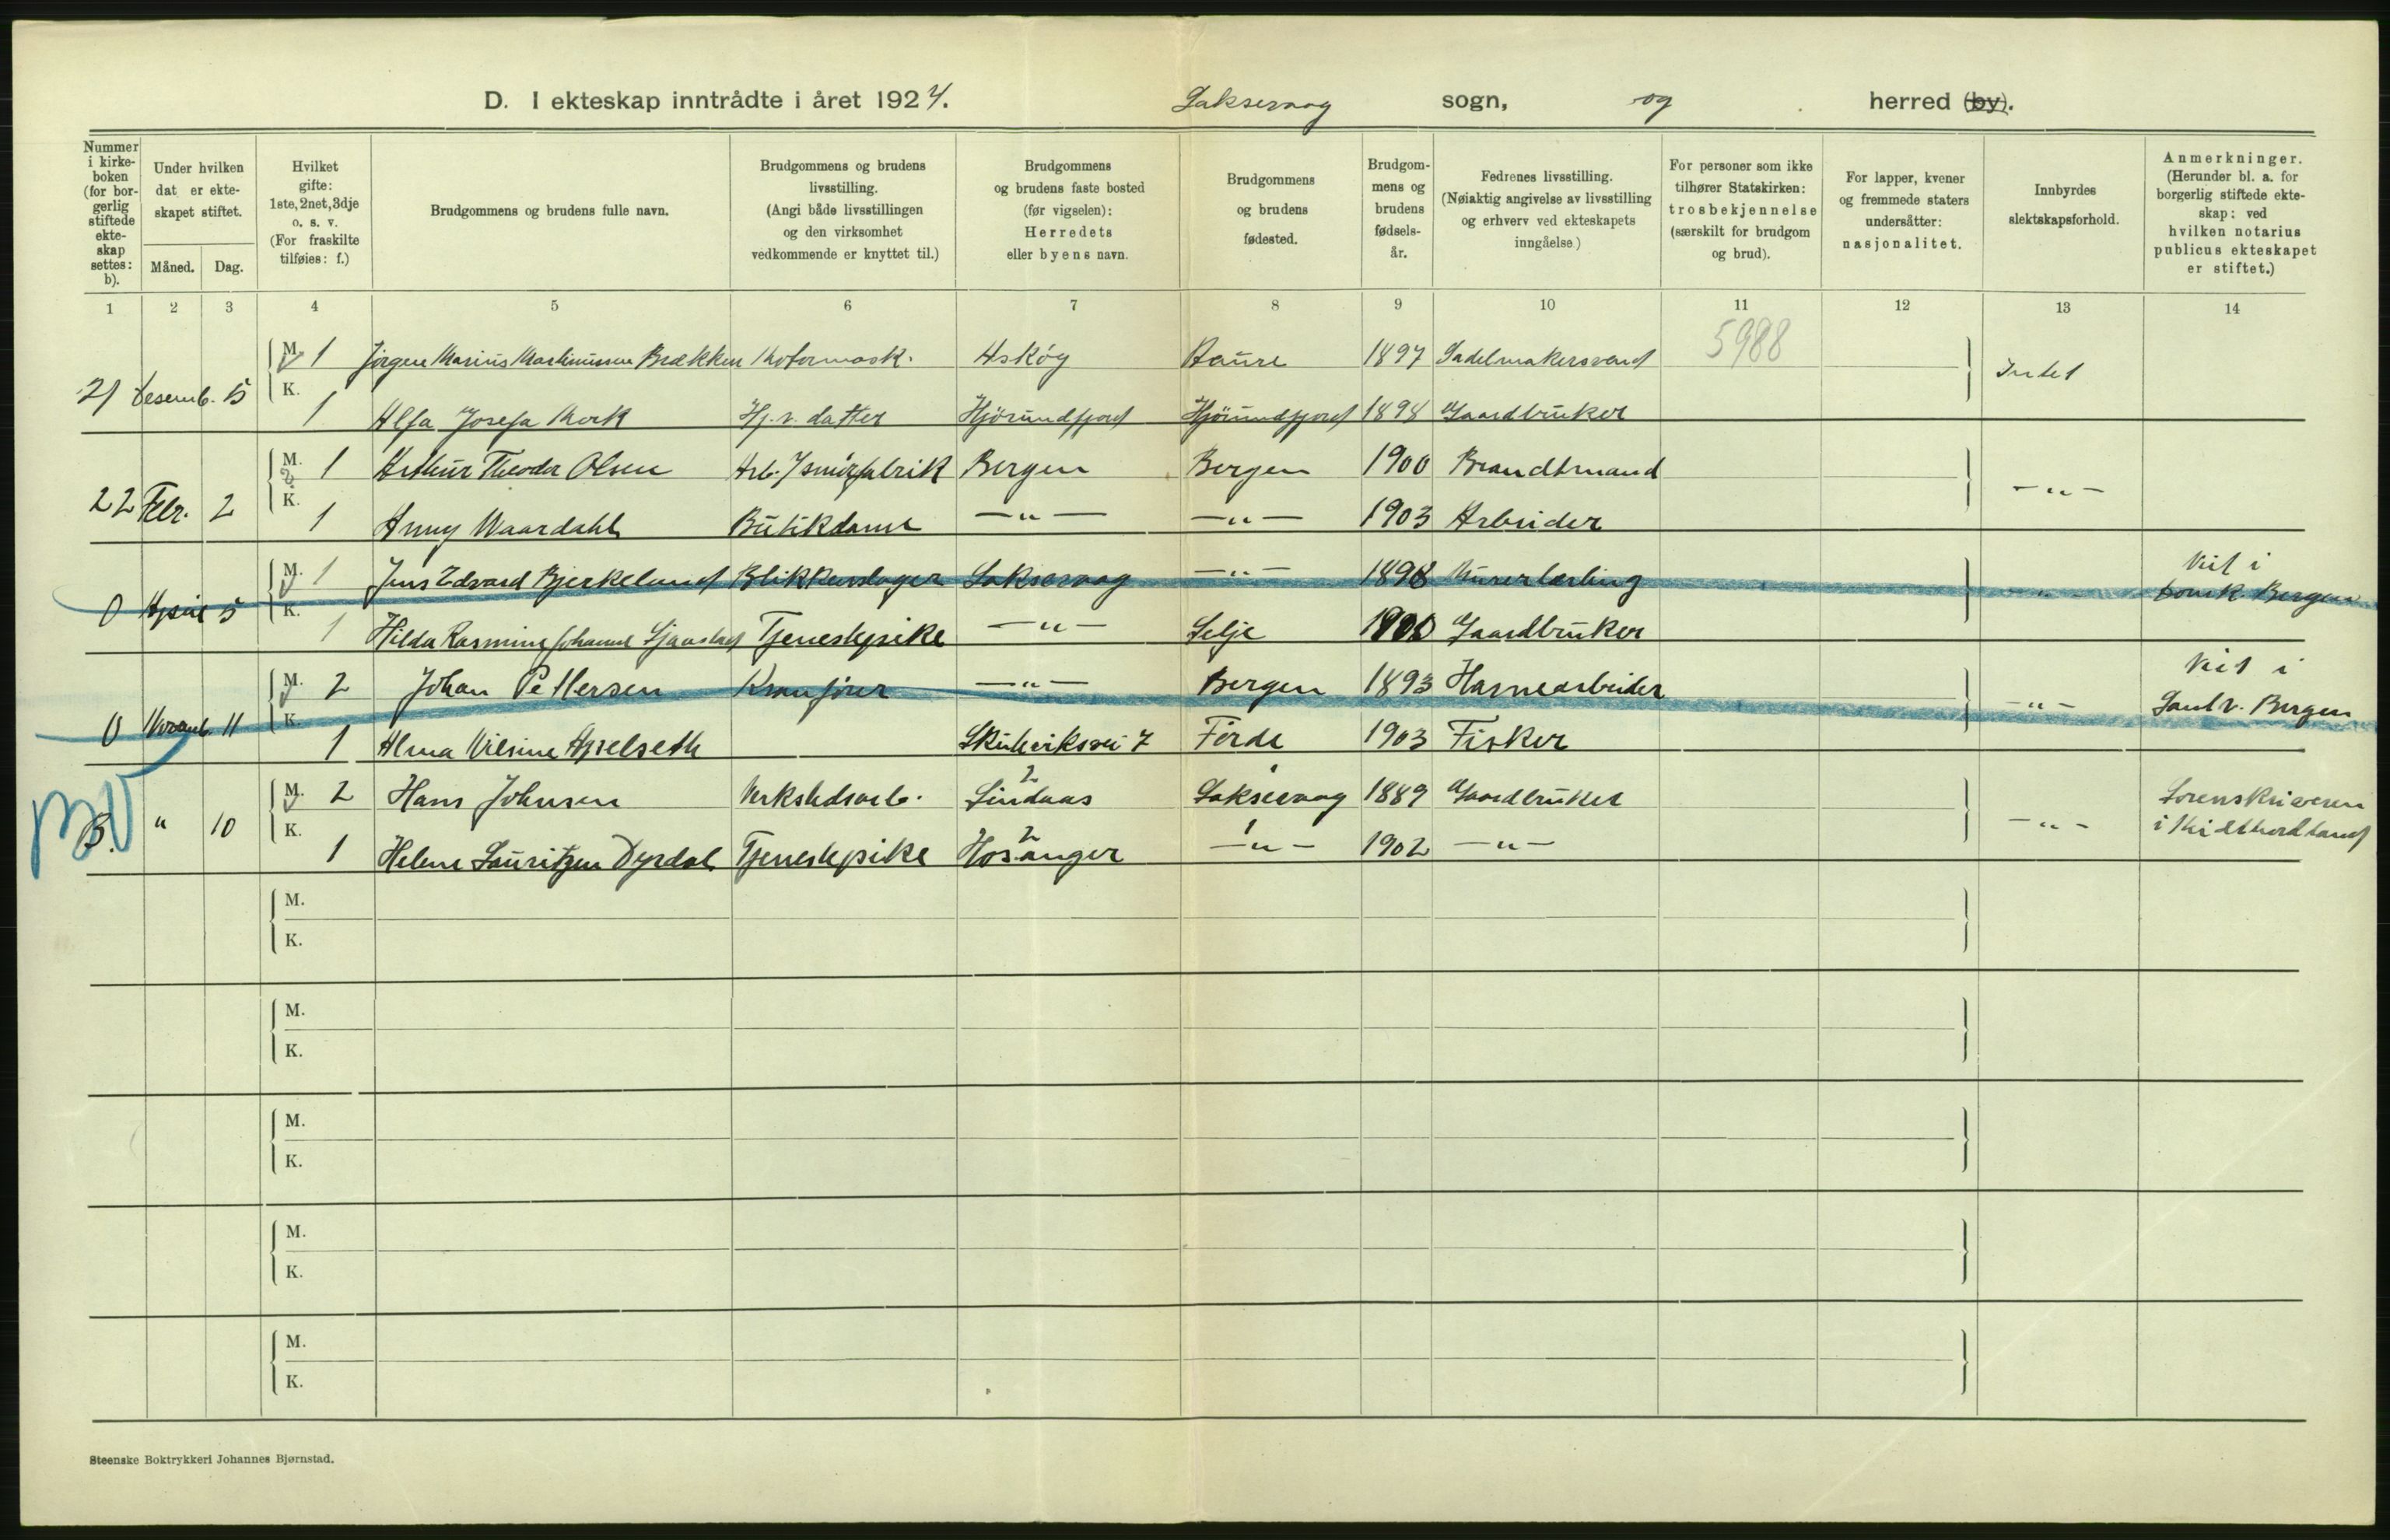 D. I ekteskap inntrådte i året 1924. Laksevaag sogn, og herred (by).
Nummer i kirkeboken (for borgerlig stiftede ekteskap settes: b).
Under hvilken dat er ekteskapet stiftet.
Måned. Dag.
Hvilket gifte: 1ste, 2net, 3dje o. s. v. (For fraskilte tilføies: f.)
Brudgommens og brudens fulle navn.
Brudgommens og brudens livsstilling. (Angi både livsstillingen og den virksomhet vedkommende er knyttet til.)
Brudgommens og brudens faste bosted (før vigselen): Herredets eller byens navn.
Brudgommens og brudens fødested.
Brudgommens og brudens fødselsår.
Fedrenes livsstilling. (Nøiaktig angivelse av livsstilling og erhverv ved ekteskapets inngåelse)
For personer som ikke tilhører Statskirken: trosbekjennelse (særskilt for brudgom og brud).
For lapper, kvener og fremmede staters undersåtter: nasjonalitet.
Innbyrdes slektskapsforhold.
Anmerkninger. (Herunder bl. a. for borgerlig stiftede ekteskap: ved hvilken notarius publicus ekteskapet er stiftet.)
1 2 3 4 5 6 7 8 9 10 11 12 13 14
5988
M. 1 Jørgen Marius Martinussen Brekken Motormask. Askøy Aure 1897 Sadelmakersvend
21 Desemb. 5 Intet
K. 1 Alfa Josefa Mork Hj.v. datter Hjörundfjord Hjörundfjord 1898 Gaardbruker
M. 1 Arthur Theodor Olsen Arb. I smörfabrik Bergen Bergen 1900 Brandtmand
22 Febr. 2 — " —
K. 1 Anny Waardahl Butikdame — " — — " — 1903 Arbeider
M. 1 Jens Edvard Bjerkelund Blikkenslager Laksevaag — " — 1898 Murerlærling
0 April 5 " Viet i Domk Bergen
K. 1 Hilda Rasmine Johanne Tjenestepike — " — Selje 1900 Gaardbruker
M. 2 Johan Pettersen Kranfører — " — Bergen 1893 Havnearbeider
0 Novemb. 11 — " — Viet i Sandv. Bergen
K. 1 Alma Vilsine Apselseth Skuteviksvei 7 Förde 1903 Fisker
M. 2 Hans Johnsen Verkstedsarb. Lindaas 2 Laksevaag 1889 Gaardbruker
B. " 10 — " — Sorenskriveren i Midthordland
K. 1 Helene Lauritzen Dyrdal Tjenestepike Hosanger 2 — " — 1902 — " —
M.
K.
M.
K.
M.
K.
M.
K.
M.
K.
Steenske Boktrykkeri Johannes Bjørnstad.